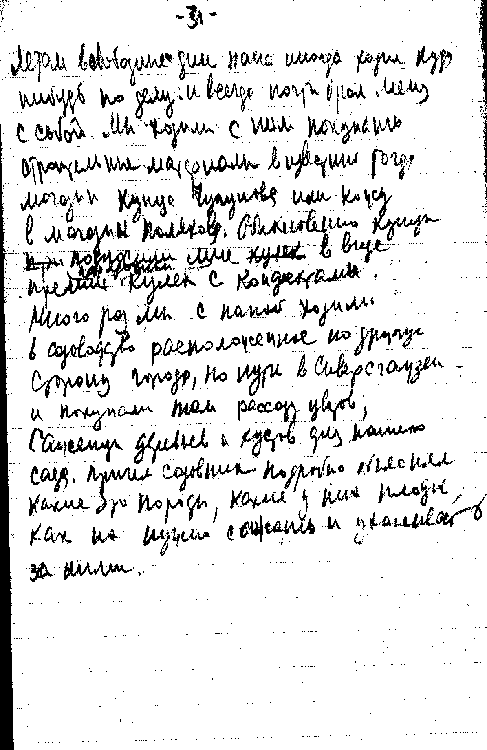 -31-
Летом в свободные дни папа иногда ходил куда
нибудь по делу и всегда почти брал меня
с собой. Мы ходили с ним покупать
строительные материалы в
магазин купца Чугунова или
в магазин Поляков. Обыкновенно купцы
подносили мне в виде
премии кулек с конфектами.
Много раз мы с папой ходили
в садоводство расположенное по другую
сторону города, по пути в
и покупали там рассаду цветов,
саженцы деревьев и кустов для нашего
сада. Причем садовник подробно объяснял
какие это породы, какие у них плоды,
как их нужно сажать и ухаживать
за ними.